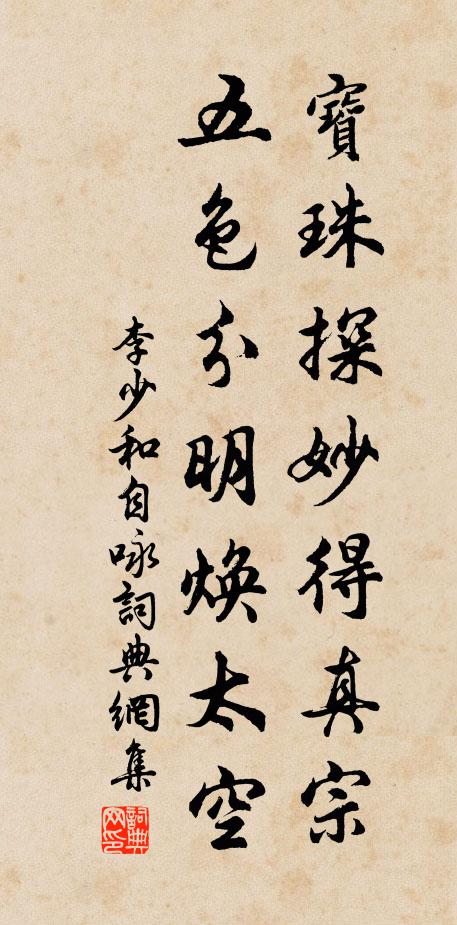 寶珠探妙得真宗
五色分明煥太空
李少和自咏詞典網集
詞典网印